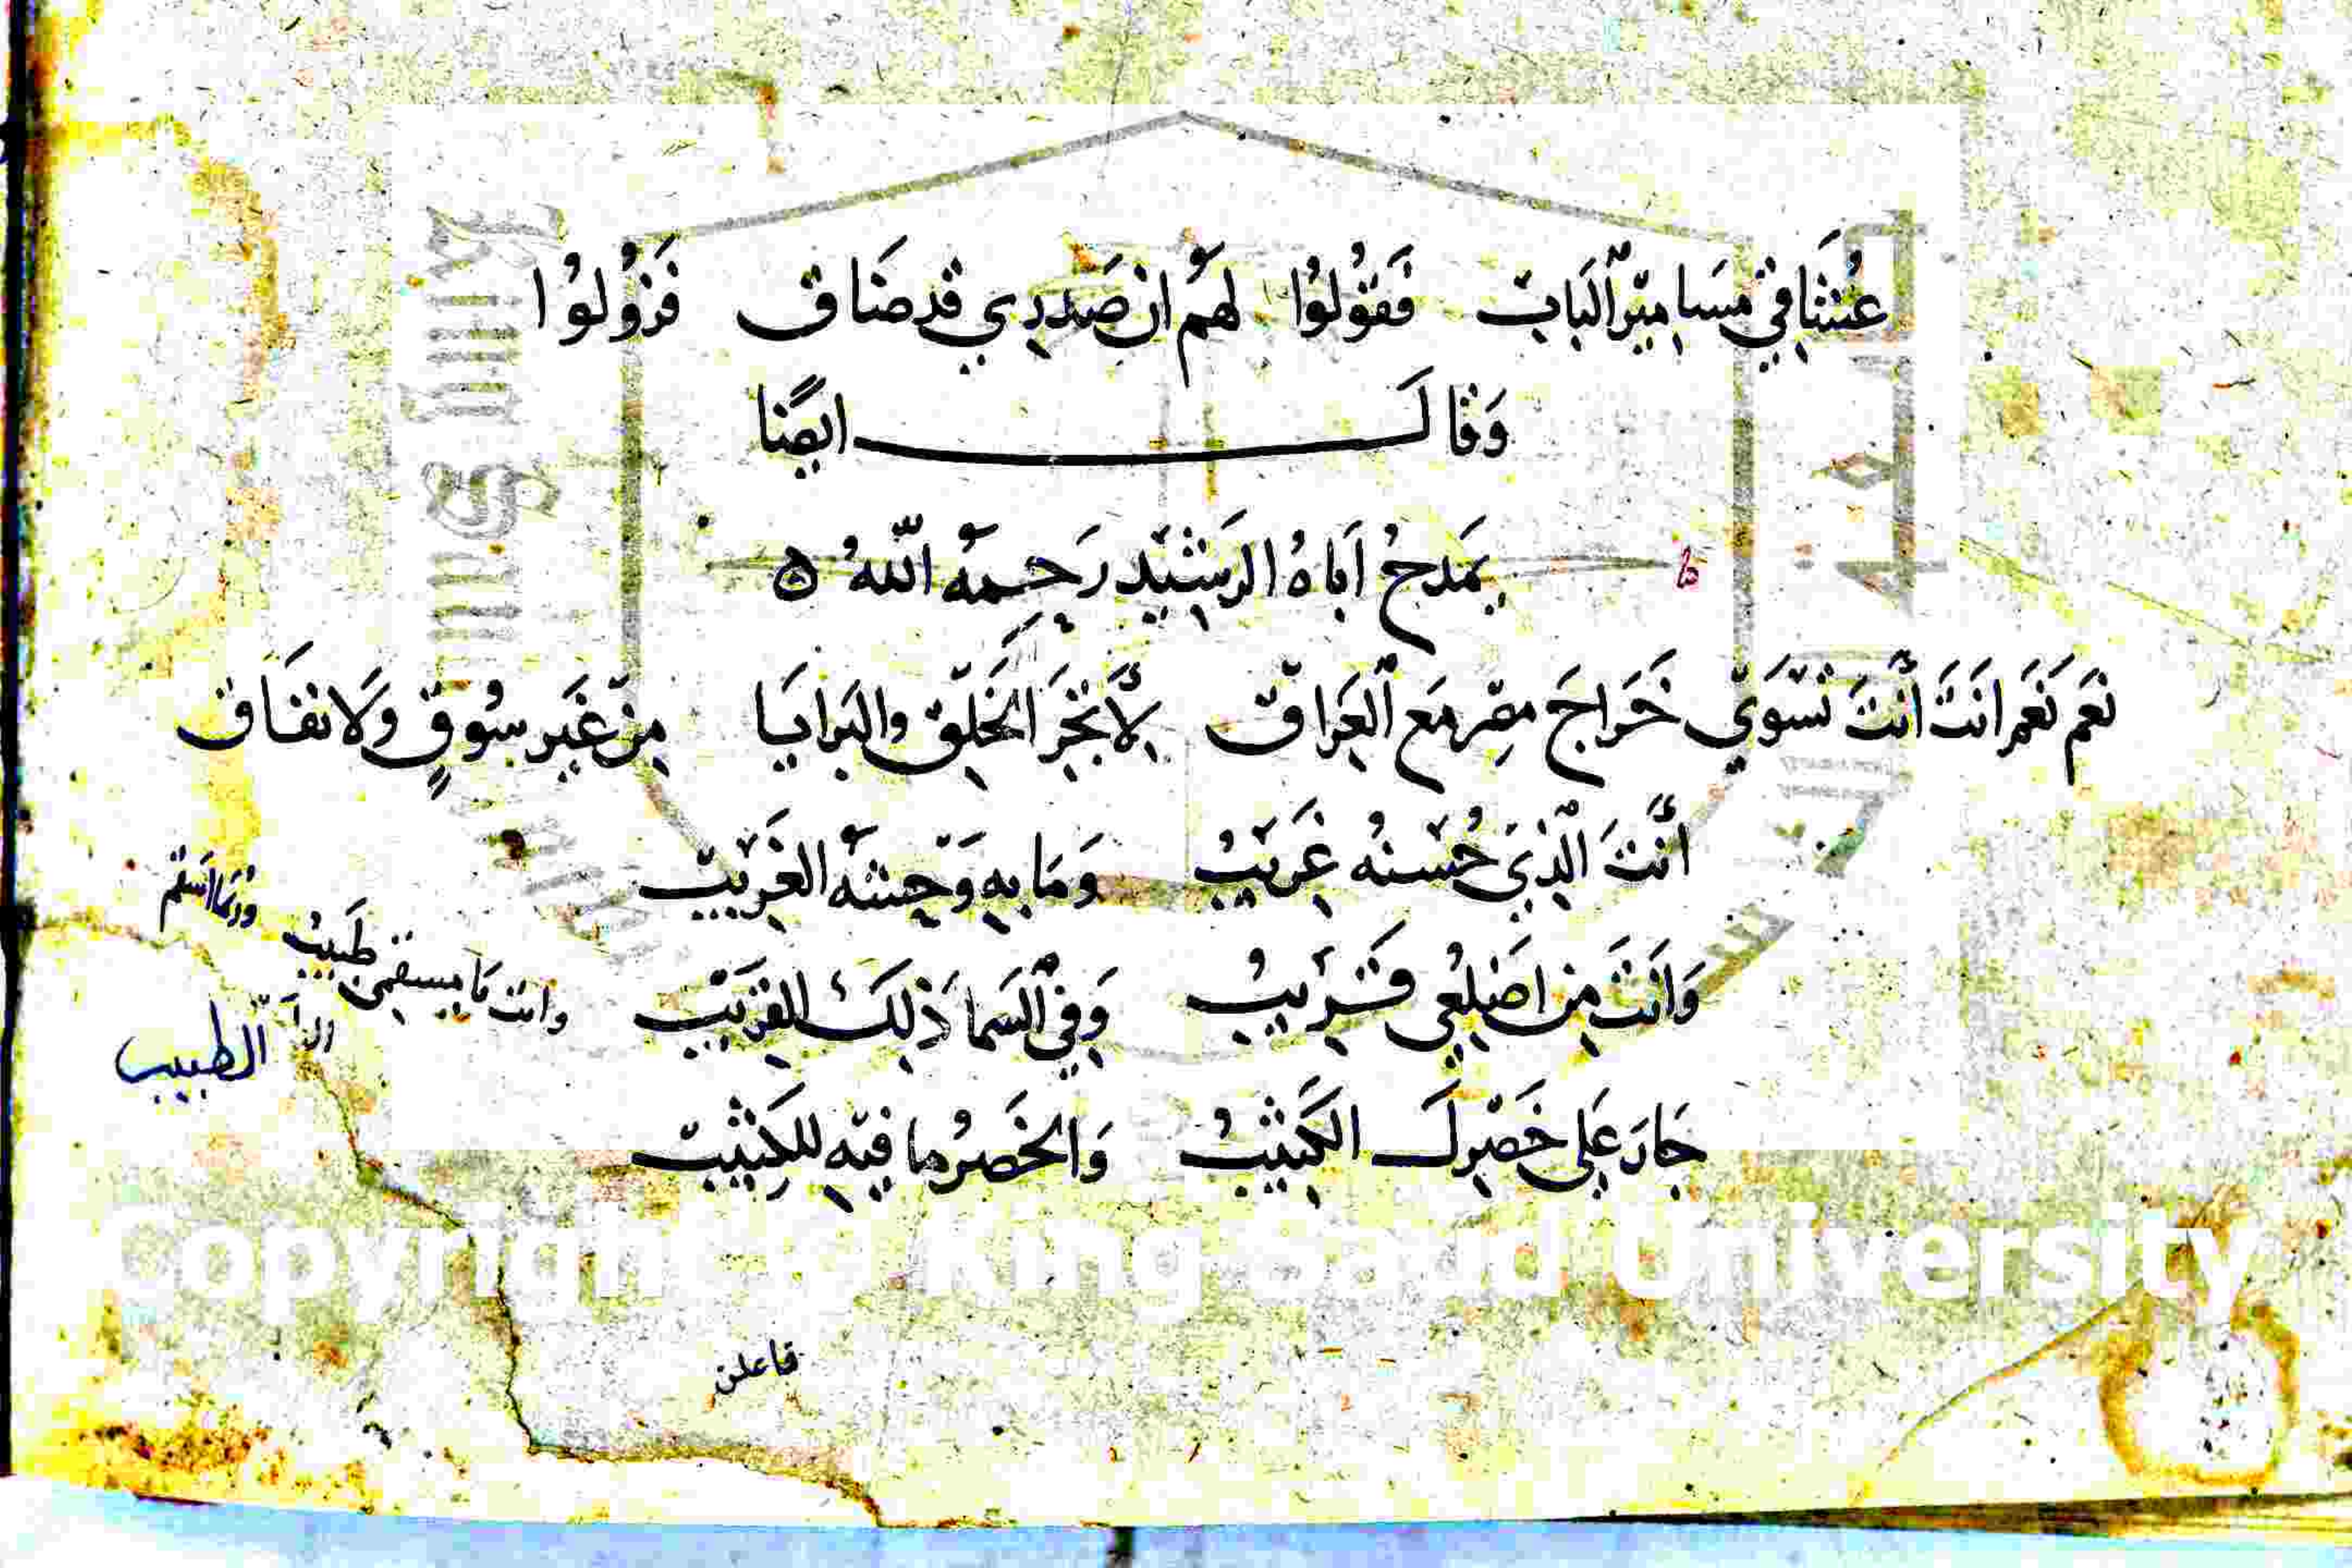 عُتنَا في مسَامير اَلبَاب فَقوُلوُا لهَم ان صَدري قد ضَاق فَزوُلوُا
وَقالَ ايضًا
يمَدحُ اَباهُ الرشَيد رَحِمهُ اللّهُ
نعَم نَعَم انَتَ اَنتَ تسَوَي خَراجَ مصِر مَع اَلعِرَاق مِن غَير سُوقٍ وَلا نفَاق
اَنتَ الّذِي حُسْنهُ غَريبُ وَمَا بهِ وَحِشهُ الغَريبْ
وَاَنتَ مِن اضَلعُي قَريبُ وَفِي السَما ذَلِكَ القرَيبْ
جَارَ عَلي خَصْرِكَ الكَثيبُ وَالخَصرُ ما فيهِ للِكَثيبْ
وانت يَا مسقمي طَبيبُ
الطبيب
فاعلن
Copyright © King Saud University